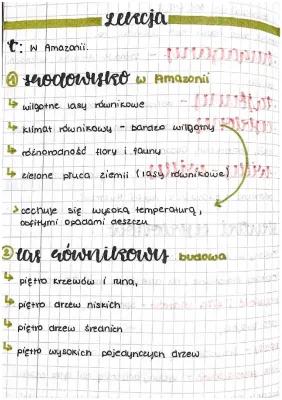 Lekcja
T: W Amazonii.
1 środowisko w Amazonii
↳ wilgotne lasy równikowe
↳ klimat równikowy - bardzo wilgotny
↳ różnorodność flory i fauny
↳ zielone płuca ziemii (lasy równikowe)
> cechuje się wysoką temperaturą,
obfitymi opadami deszczu
2 las równikowy budowa
↳ piętro krzewów i runa,
↳ piętro drzew niskich
↳ piętro drzew średnich
↳ piętro wysokich pojedynczych drzew